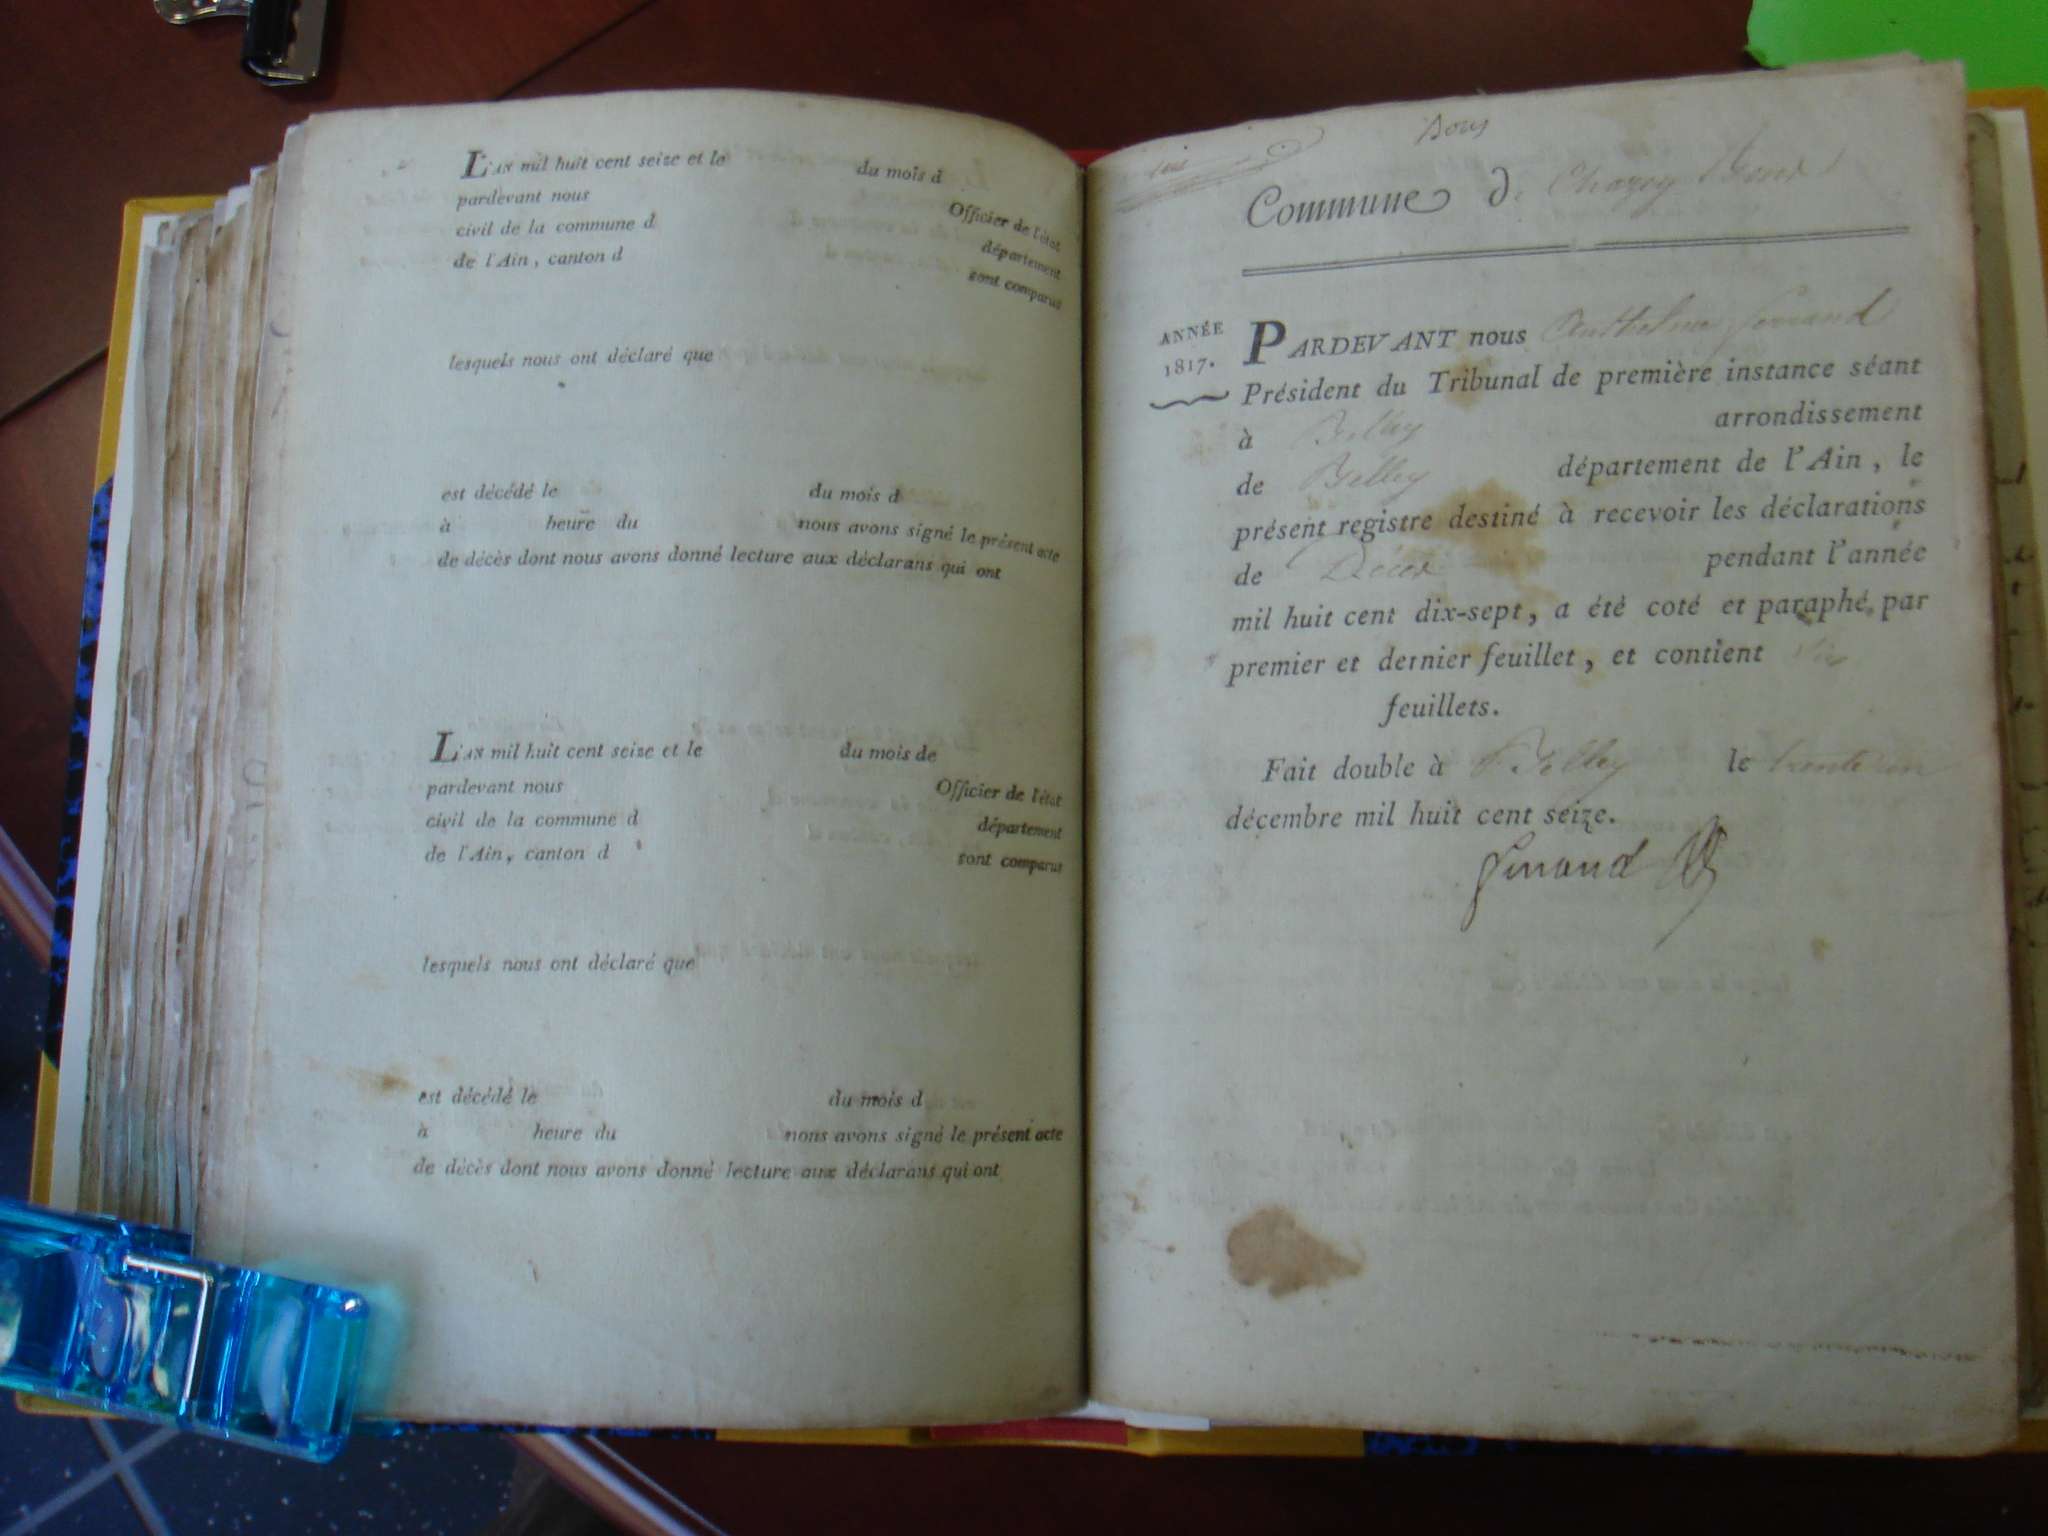 L'AN mil huit cent seize et le du mois d
pardevant nous Officier de l'état
civil de la commune d département
de l'Ain, canton d sont comparus
lesquels nous ont déclaré que
est décédé le du mois d
à heure du nous avons signé le présent acte
de décès dont nous avons donné lecture aux déclarans qui ont
L'AN mil huit cent seize et le du mois de
pardevant nous Officier de l'état
civil de la commune d département
de l'Ain, canton d sont comparus
lesquels nous ont déclaré que
est décédé le du mois d
à heure du nous avons signé le présent acte
de décès dont nous avons donné lecture aux déclarans qui ont
Commune d
ANNÉE
1817.
PARDEVANT nous Anthelme
Président du Tribunal de première instance séant
à Belley arrondissement
de Belley département de l'Ain, le
présent registre destiné à recevoir les déclarations
de Décès pendant l'année
mil huit cent dix-sept, a été coté et paraphé par
premier et dernier feuillet, et contient
feuillets.
Fait double à Belley le trente un
décembre mil huit cent seize.